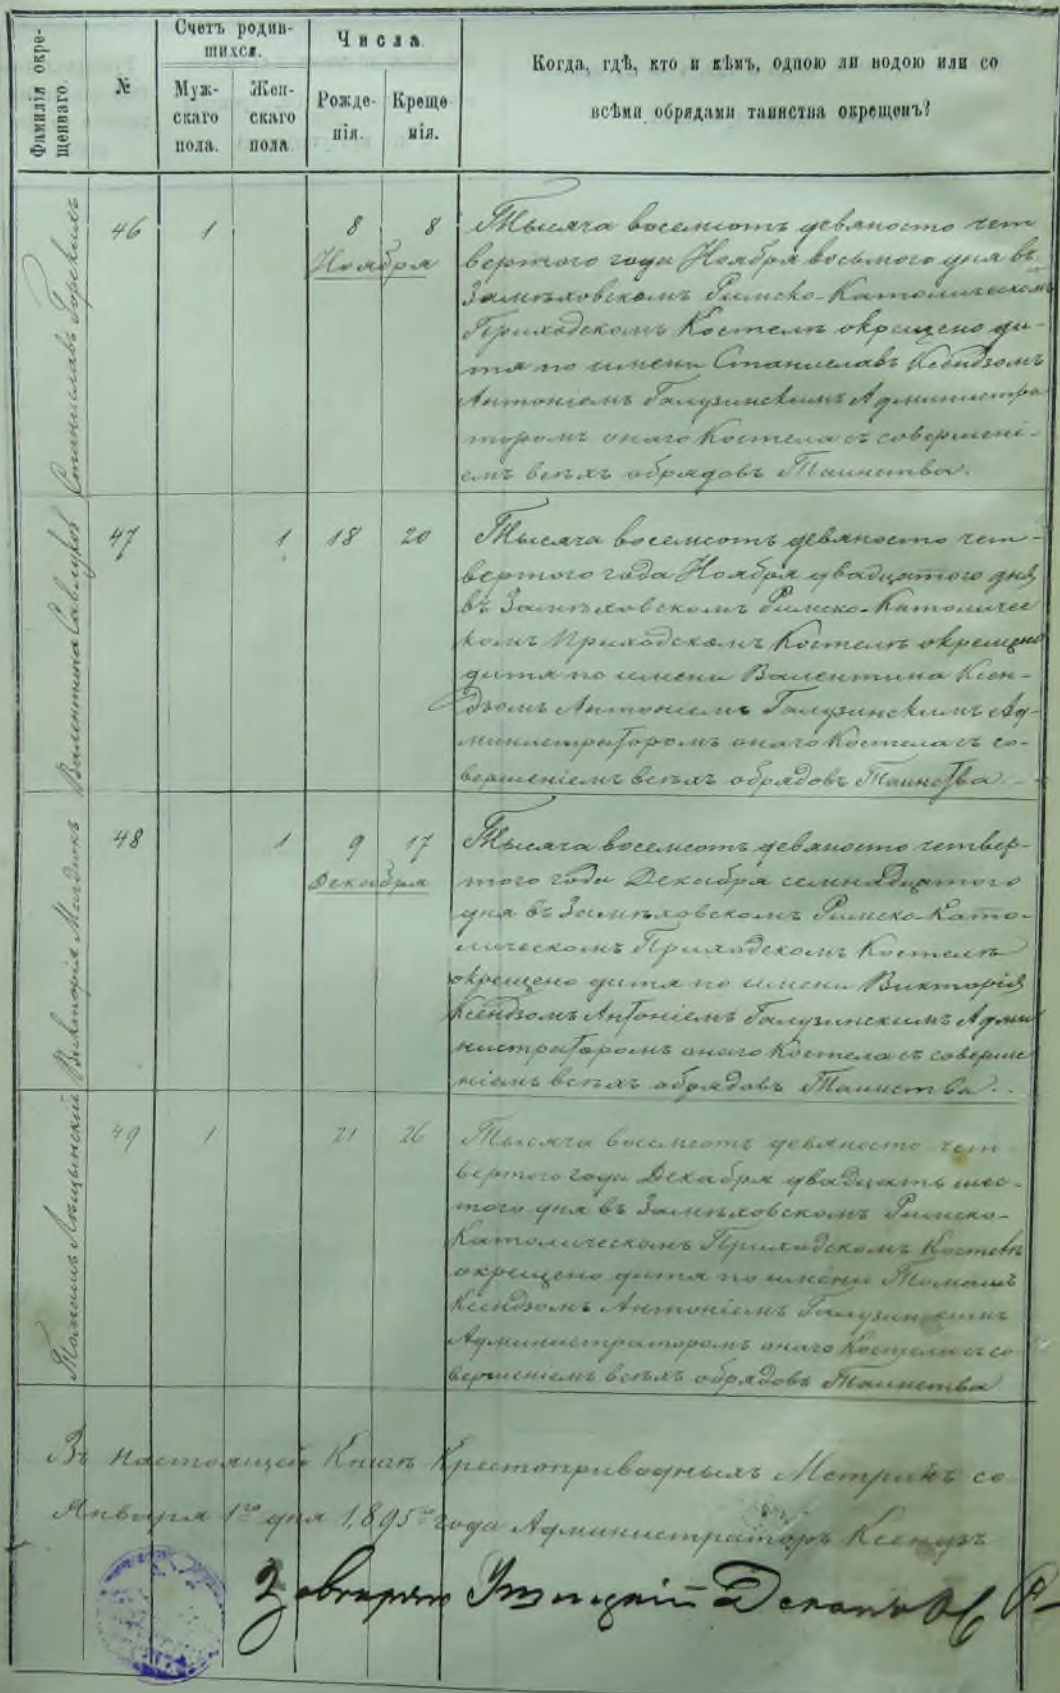 Фамилія окре-
щеннаго.
№
Счетъ родив-
шихся.
Муж-
скаго
пола.
Жен-
скаго
пола
Числа
Рожде-
нія.
Креще
нія.
Когда, гдѣ, кто и кѣмъ, одною ли водою или со
всѣми обрядами таинства окрещенъ?
Станиславъ
46 1 8 8
Ноября
Тысяча восемсотъ девяносто чет
вертого года Ноября восьмого дня въ
Замѣховскомъ Римско-Католическомъ
Приходскомъ Костелѣ окрещено ди-
тя по имени Станиславъ Ксендзомъ
Антоніемъ Галузинскимъ Администра
торомъ онаго Костела съ совершені-
емъ всѣхъ обрядовъ Таинства.
Валентина Савлуков
47 1 18 20
Тысяча восемсотъ девяносто чет-
вертого года Ноября двадцатого дня
въ Замѣховскомъ Римско-Католичес
комъ Приходскомъ Костелѣ окрещено
дитя по имени Валентина Ксен-
дзомъ Антоніемъ Галузинскимъ Ад-
министраторомъ онаго Костела съ со-
вершеніемъ всѣхъ обрядовъ Таинства.
Викторія
48 1 9 17
Декабря
Тысяча восемсотъ девяносто четвер-
того года Декабря семнадцатого
дня въ Замѣховскомъ Римско-Като-
лическомъ Приходскомъ Костелѣ
окрещено дитя по имени Викторія
Ксендзомъ Антоніемъ Галузинскимъ Адми
нистраторомъ онаго Костела съ соверше
ніемъ всѣхъ обрядовъ Таинства.
Томашъ Лѣщынскій
49 1 21 26
Тысяча восемсотъ девяносто чет
вертого года Декабря двадцать шес-
того дня въ Замѣховскомъ Римско-
Католическомъ Приходскомъ Костелѣ
окрещено дитя по имени Томашъ
Ксендзомъ Антоніемъ Галузинскимъ
Администраторомъ онаго Костела съ со
вершеніемъ всѣхъ обрядовъ Таинства
Въ настоящей Книгѣ Метрикъ со
Января 1го дня 1895го года Администраторъ Ксендзъ
Деканъ